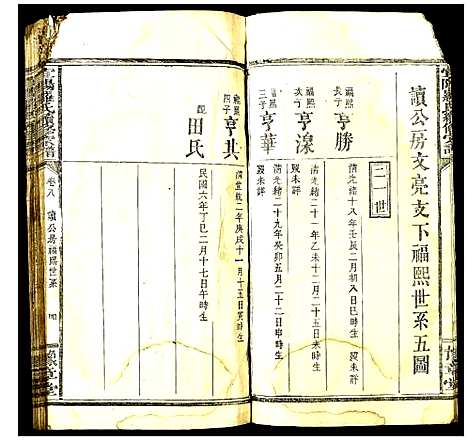 讀公房文亮支下福熙世系五圖
二一世
福熙長子 亨勝
清光緒十八年壬辰二月初八日巳時生
歿未詳
福熙次子 亨湶
清光緒二十一年乙未十二月二十五日未時生
歿未詳
福熙三子 亨華
清光緒二十九年癸卯五月二十二日申時生
歿未詳
福熙四子 亨其
清宣統二年庚戌十一月十五日寅時生
配 田氏
民國六年丁巳二月十七日午時生
卷八
讀公房福熙世系
豫章堂